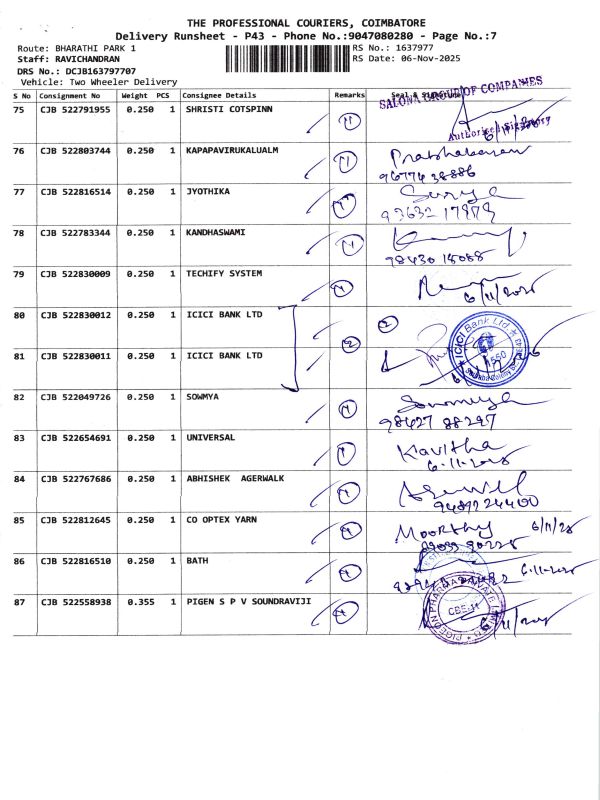 THE PROFESSIONAL COURIERS, COIMBATORE
Delivery Runsheet - P43 - Phone No.:9047080280 - Page No.:7
Route: BHARATHI PARK 1 RS No.: 1637977
Staff: RAVICHANDRAN RS Date: 06-Nov-2025
DRS No.: DCJB163797707
Vehicle: Two Wheeler Delivery
S No Consignment No Weight PCS Consignee Details Remarks Seal & Signature
SALONA GROUP OF COMPANIES
75 CJB 522791955 0.250 1 SHRISTI COTSPINN
Authorised Signatory
76 CJB 522803744 0.250 1 KAPAPAVIRUKALUALM Prabhakaran
96774 38886
77 CJB 522816514 0.250 1 JYOTHIKA Surya
93632 17979
78 CJB 522783344 0.250 1 KANDHASWAMI
98430 15088
79 CJB 522830009 0.250 1 TECHIFY SYSTEM
6/11/2025
80 CJB 522830012 0.250 1 ICICI BANK LTD 2 2
ICICI Bank Ltd.
81 CJB 522830011 0.250 1 ICICI BANK LTD
82 CJB 522049726 0.250 1 SOWMYA Sowmiya
98427 88297
83 CJB 522654691 0.250 1 UNIVERSAL Kavitha
6-11-2025
84 CJB 522767686 0.250 1 ABHISHEK AGERWALK
9489224400
85 CJB 522812645 0.250 1 CO OPTEX YARN Moorthy 6/11/25
86 CJB 522816510 0.250 1 BATH 6-11-2025
87 CJB 522558938 0.355 1 PIGEN S P V SOUNDRAVIJI
CBE-11
6/11/2025